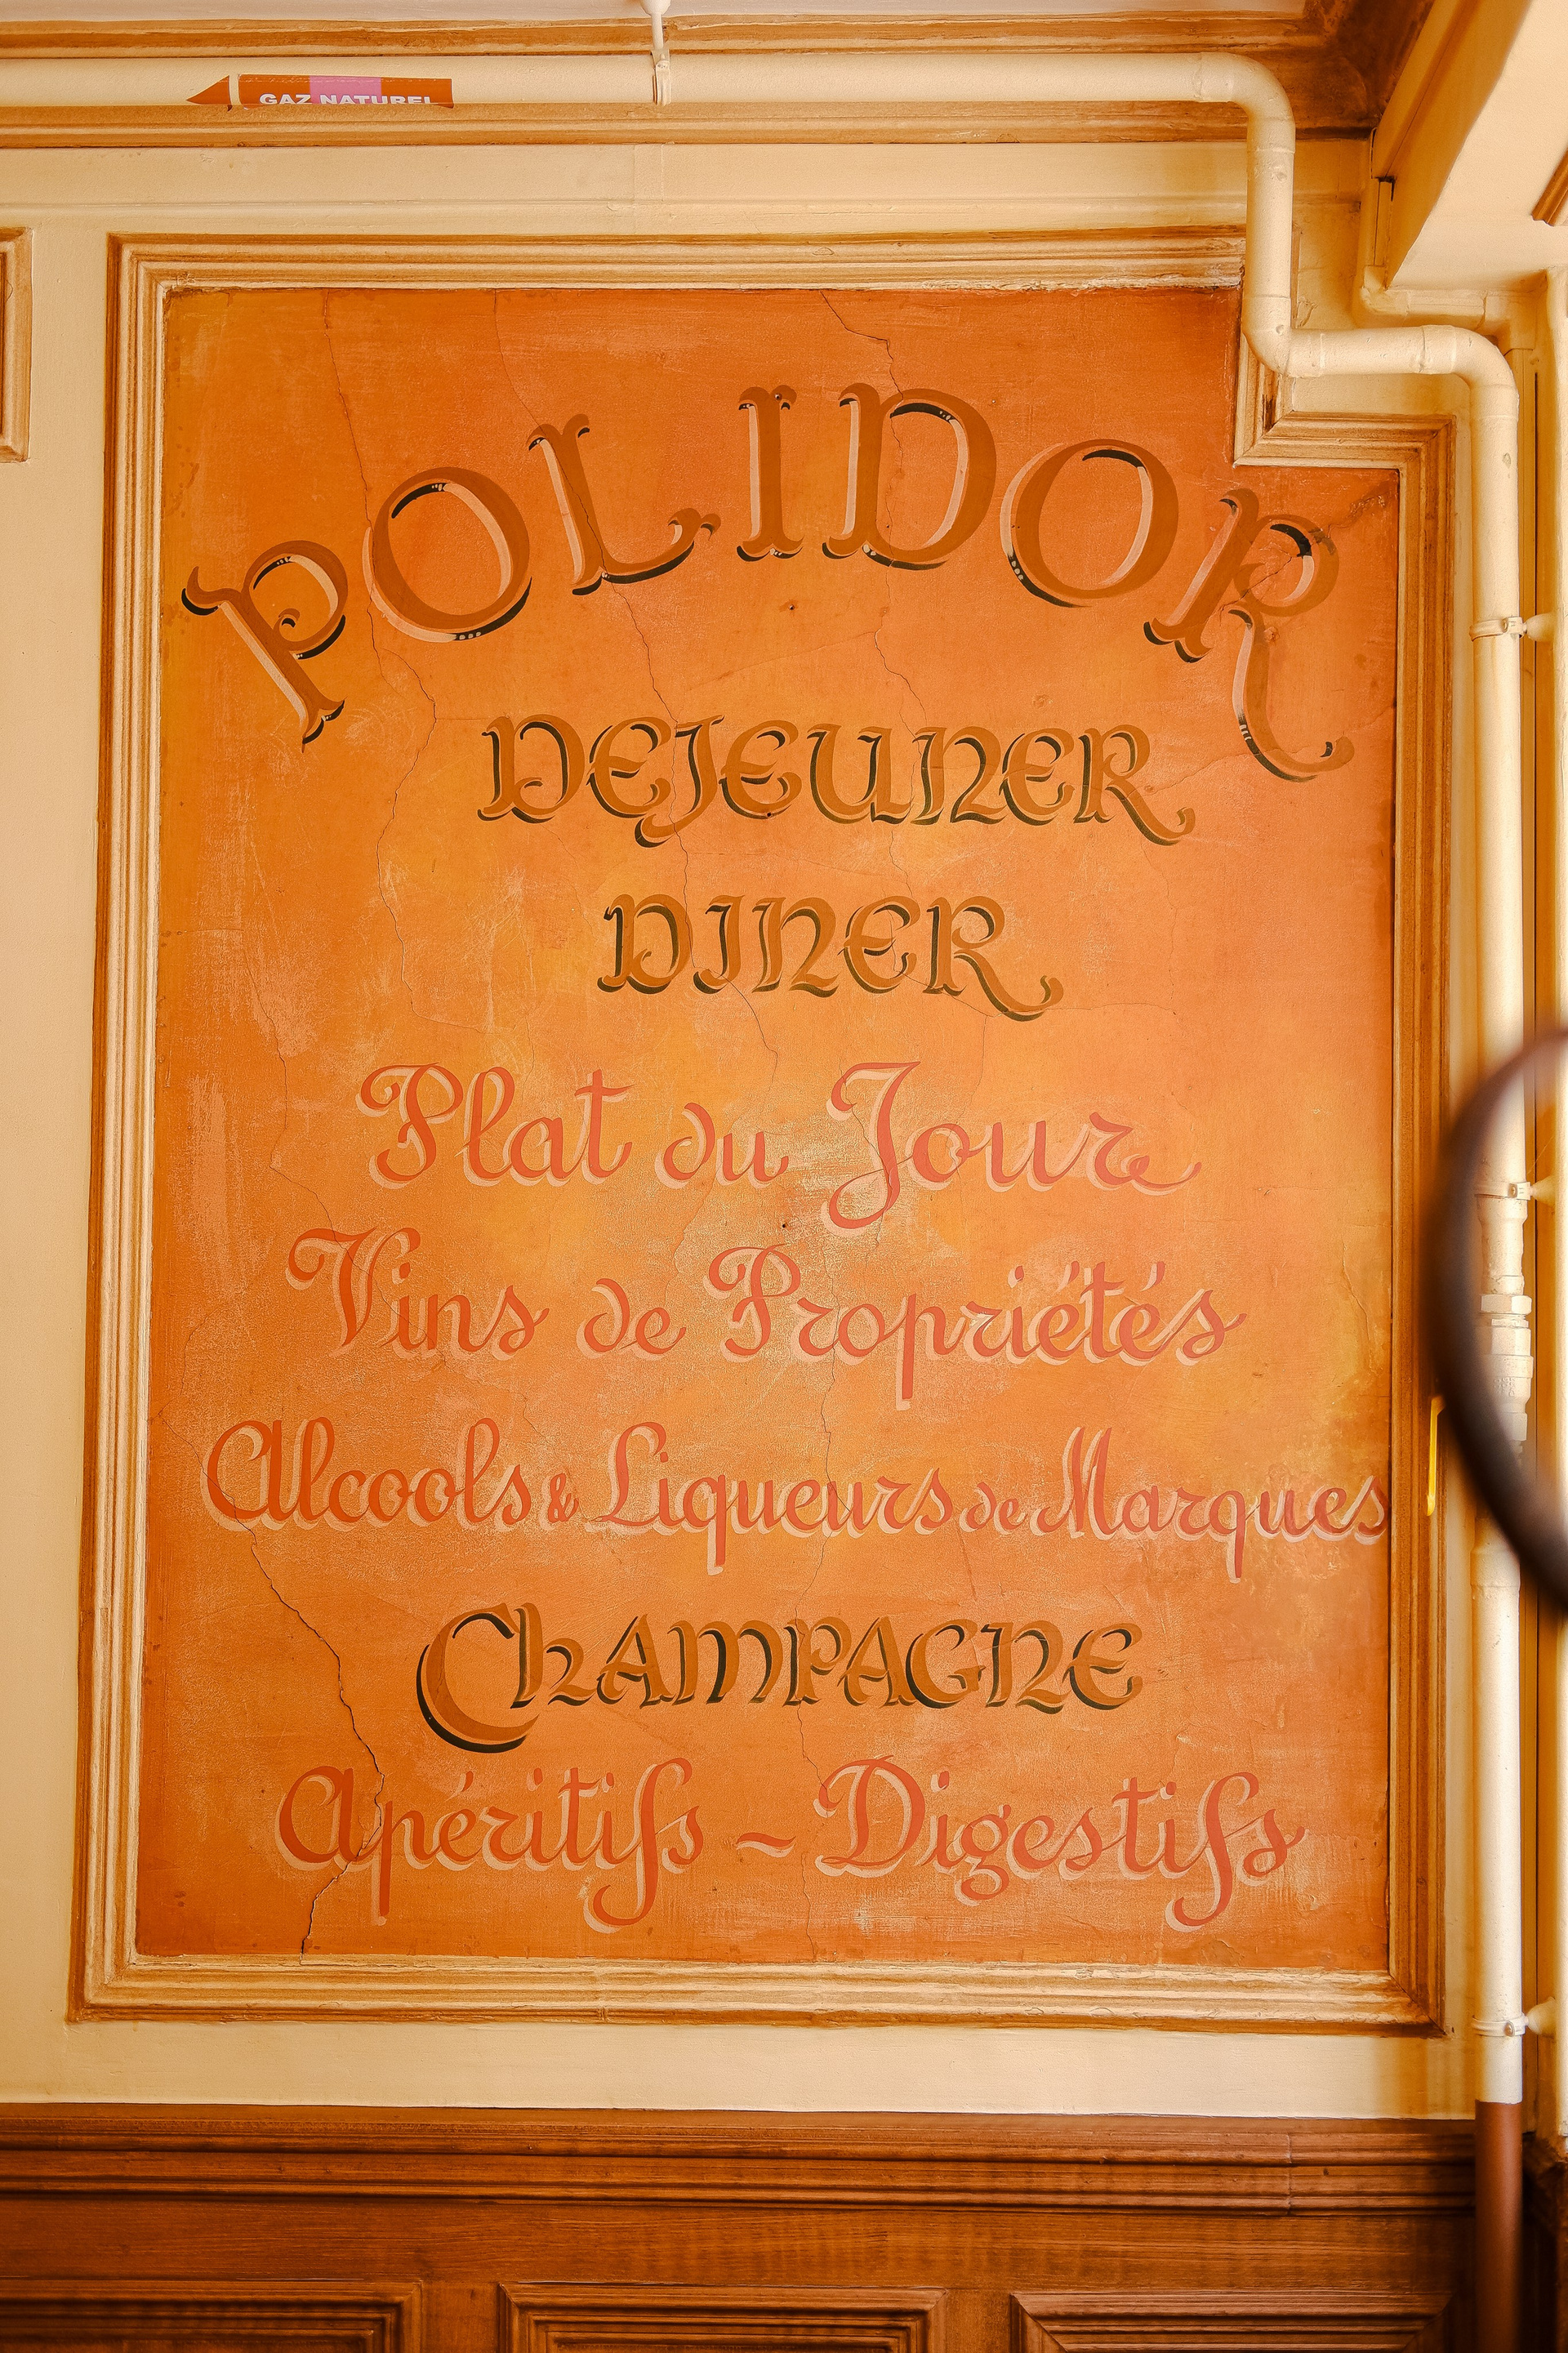 GAZ NATUREL
POLIDOR
DEJEUNER
DINER
Plat du Jour
Vins de Propriétés
Alcools & Liqueurs de Marques
CHAMPAGNE
Apéritifs ~ Digestifs